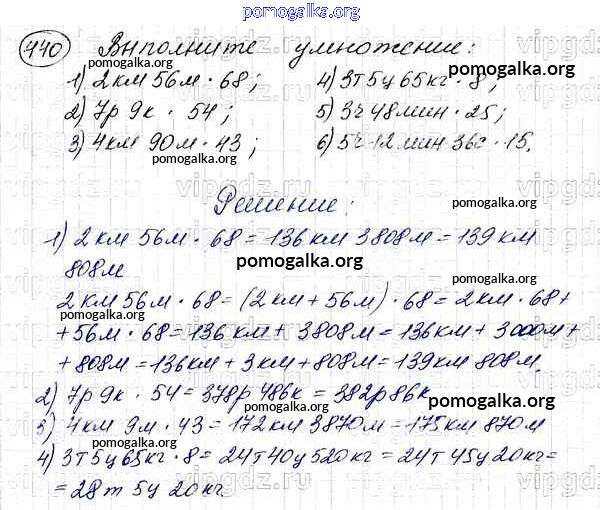 pomogalka.org
440 Выполните умножение:
1) 2км 56м · 68; 4) 3т 5ц 65кг · 8;
2) 7р 9к · 54; 5) 3ч 48мин · 25;
3) 4км 90м · 43; 6) 5ч 12мин 36с · 15.
Решение:
1) 2км 56м · 68 = 136км 3808м = 139км
808м
2км 56м · 68 = (2км + 56м) · 68 = 2км · 68 +
+ 56м · 68 = 136км + 3808м = 136км + 3000м +
+ 808м = 136км + 3км + 808м = 139км 808м.
2) 7р 9к · 54 = 378р 486к = 382р 86к
3) 4км 9м · 43 = 172км 3870м = 175км 870м
4) 3т 5ц 65кг · 8 = 24т 40ц 520кг = 24т 45ц 20кг =
= 28т 5ц 20кг